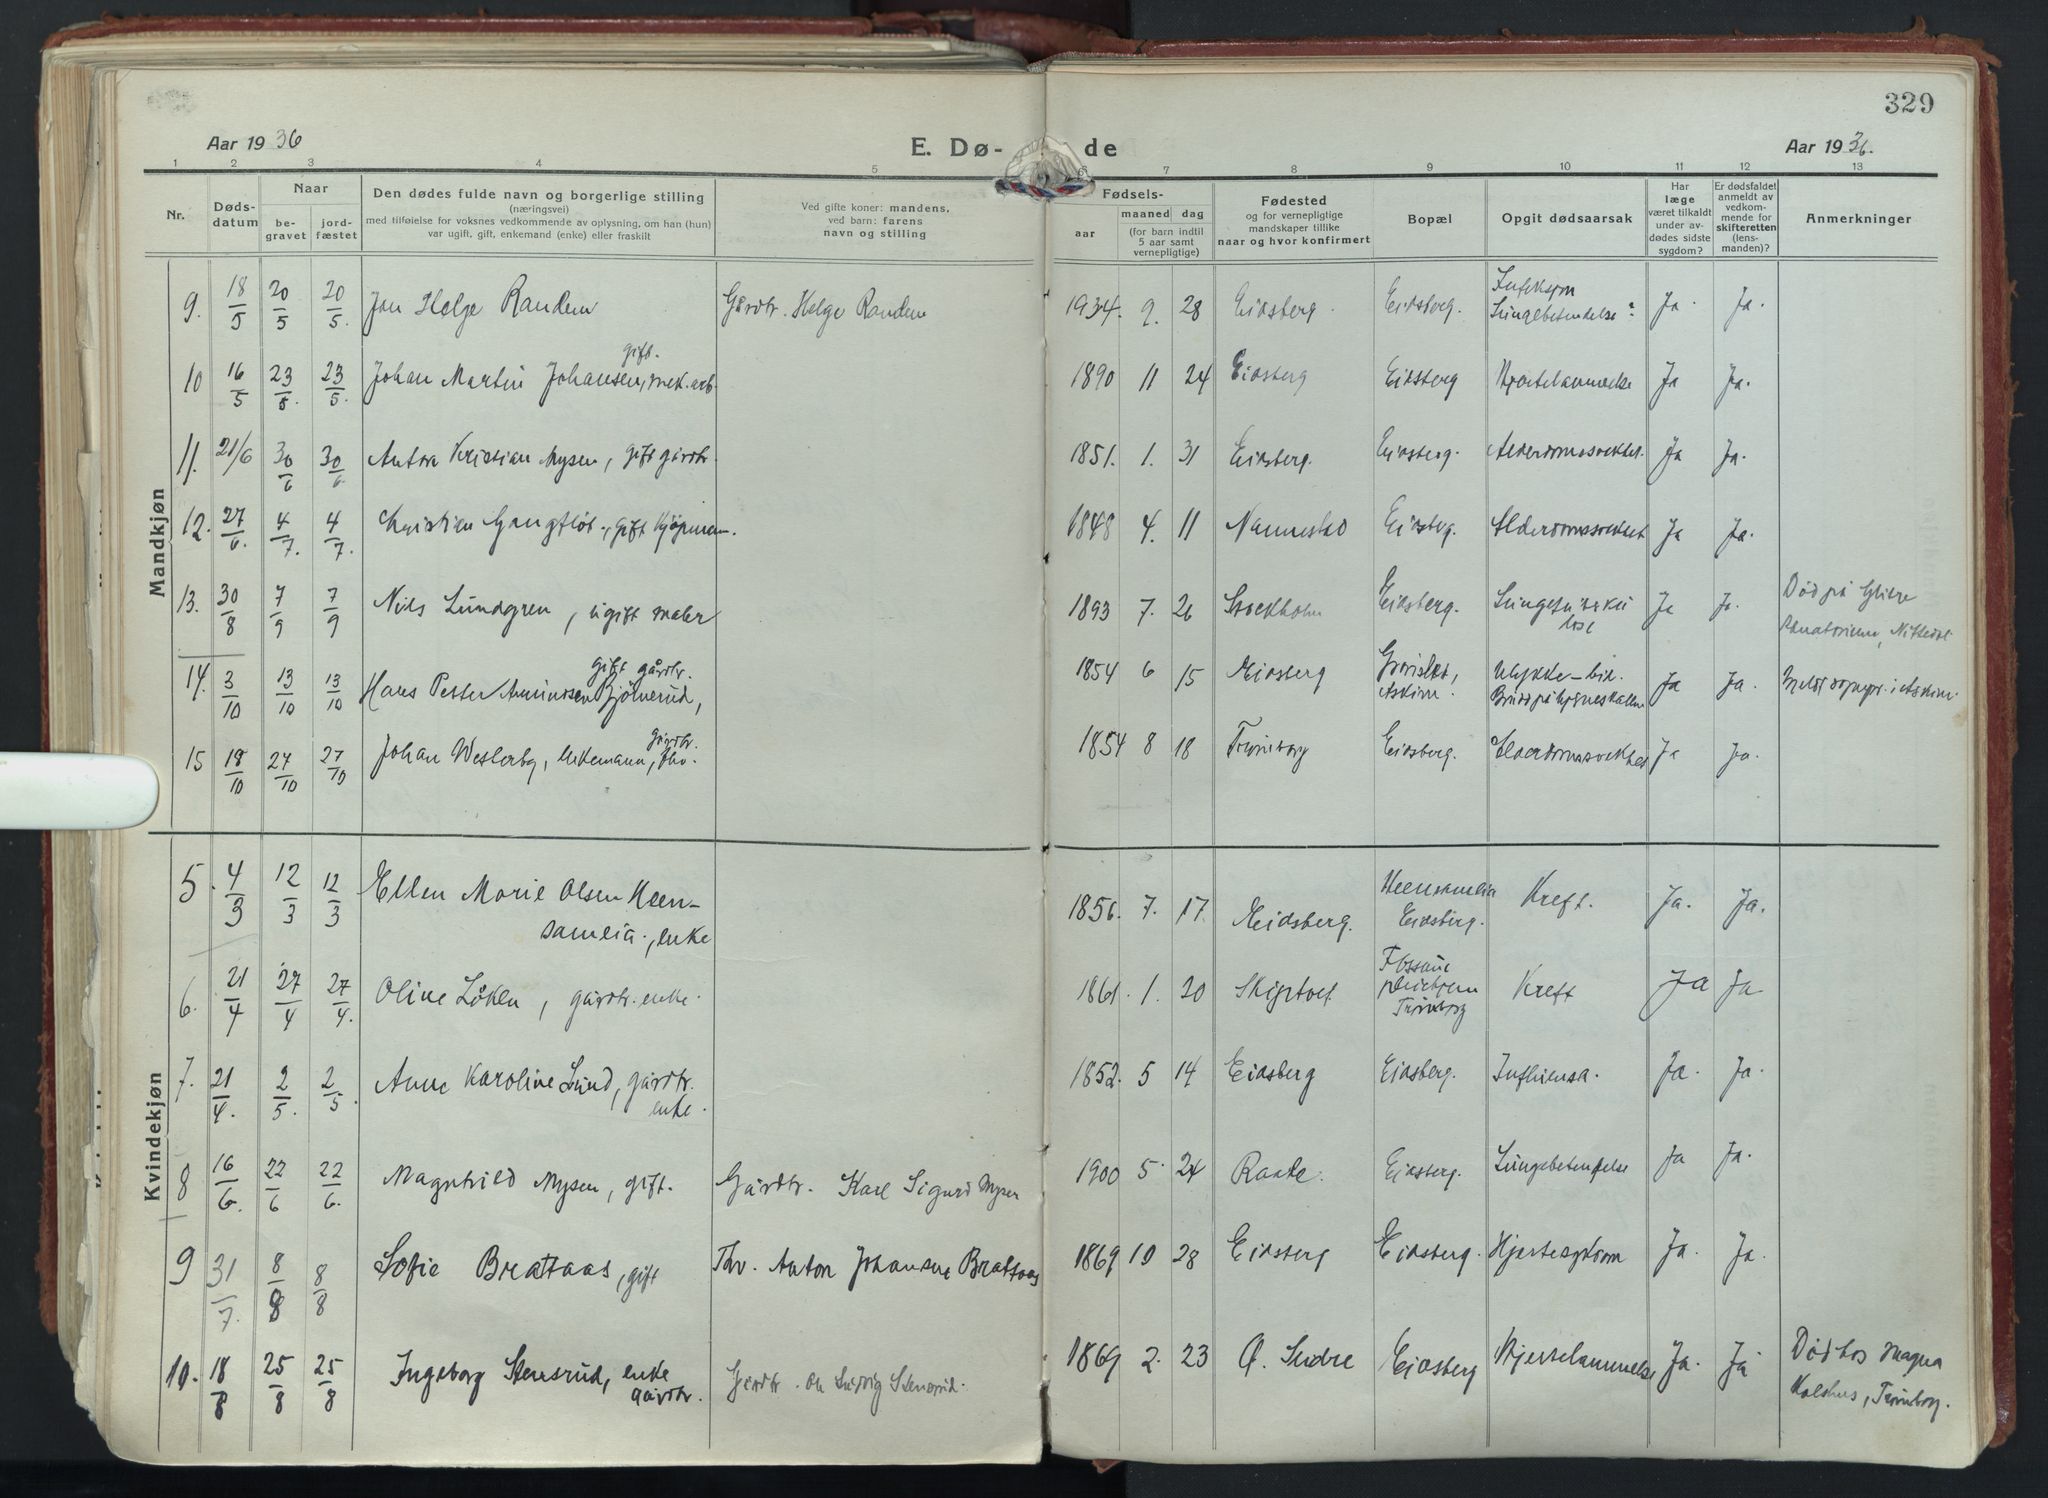 329
Aar 1936
E. Dø- de
Aar 1936.
1 2 3 4 5 6 7 8 9 10 11 12 13
Nr.
Dødsdatum
Naar
begravet
jordfæstet
Den dødes fulde navn og borgerlige stilling
(næringsvei)
med tilføielse for voksnes vedkommende av oplysning, om han (hun)
var ugift, gift, enkemand (enke) eller fraskilt
Ved gifte koner: mandens,
ved barn: farens
navn og stilling
Fødsels-
aar
maaned dag
(for barn indtil
5 aar samt
vernepligtige)
Fødested
og for vernepligtige
mandskaper tillike
naar og hvor konfirmert
Bopæl
Opgit dødsaarsak
Har
læge
været tilkaldt
under avdødes sidste
sygdom?
Er dødsfaldet
anmeldt av
vedkommende for
skifteretten
(lensmanden)?
Anmerkninger
Mandkjøn
9. 18/5 20/5 20/5. Jan Helge Randem Gårdbr. Helge Randem 1934. 9. 28 Eidsberg. Eidsberg. Infeksjon Lungebetendelse? Ja. Ja.
10 16/5 23/5. 23/5. Johan Martin Johansen, gift. mek. arb. 1890 11 24 Eidsberg Eidsberg Hjertelammelse Ja Ja.
11. 21/6 30/6 30/6 Anton Kristian Mysen, gift gårdbr. 1851. 1. 31 Eidsberg. Eidsberg. Alderdomssvekket. Ja Ja.
12. 27/6. 4/7. 4/7. Christian Gangfløt, gift kjøpmann. 1848 4. 11 Nannestad Eidsberg. Alderdomssvekket Ja Ja.
13. 30/8 7/9 7/9 Nils Lundgren, ugift maler 1893 7. 26 Stockholm Eidsberg. Lungetuberkulose Ja Ja. Død på Glitre Sanatorium, Nittedal
14. 3/10 13/10 13/10 Hans Petter Amundsen Bjølnerud, gift gårdbr. 1854 6 15 Eidsberg Askim. Ulykke-bil. Brudd på hjerneskallen Ja Ja. Meldt i Askim.
15 18/10 27/10 27/10 Johan Westerby, enkemann, gårdbr. fhv. 1854 8 18 Trømborg Eidsberg. Alderdomssvekket Ja Ja.
Kvindekjøn
5. 4/3 12/3 12/3 Ellen Marie Olsen Heensameia., enke 1856. 7. 17. Eidsberg. Heensameia Eidsberg. Kreft. Ja. Ja.
6. 21/4 27/4 27/4. Oline Løken, gårdbr. enke. 1861. 1. 20 Skiptvet Fossum pleiehjem Trømborg Kreft Ja Ja
7. 21/4. 2/5. 2/5. Anne Karoline Lund, gårdbr. enke. 1852. 5 14 Eidsberg Eidsberg. Influensa. Ja. Ja.
8 16/6. 22/6 22/6. Magnhild Mysen, gift. Gårdbr. Karl Sigurd Mysen 1900 5. 24 Raade. Eidsberg. Lungebetendelse Ja Ja.
9 31/7. 8/8 8/8 Sofie Brattaas, gift Fhv. Anton Johansen Brattaas 1869 10 28 Eidsberg Eidsberg. Hjertesykdom Ja. Ja.
10. 18/8 25/8 25/8 Ingeborg Stensrud, enke gårdbr. Gårdbr. Ole Ludvig Stensrud. 1869 2. 23 Ø. Slidre Eidsberg Hjertelammelse Ja. Ja Død hos Magna Kolshus, Trømborg.